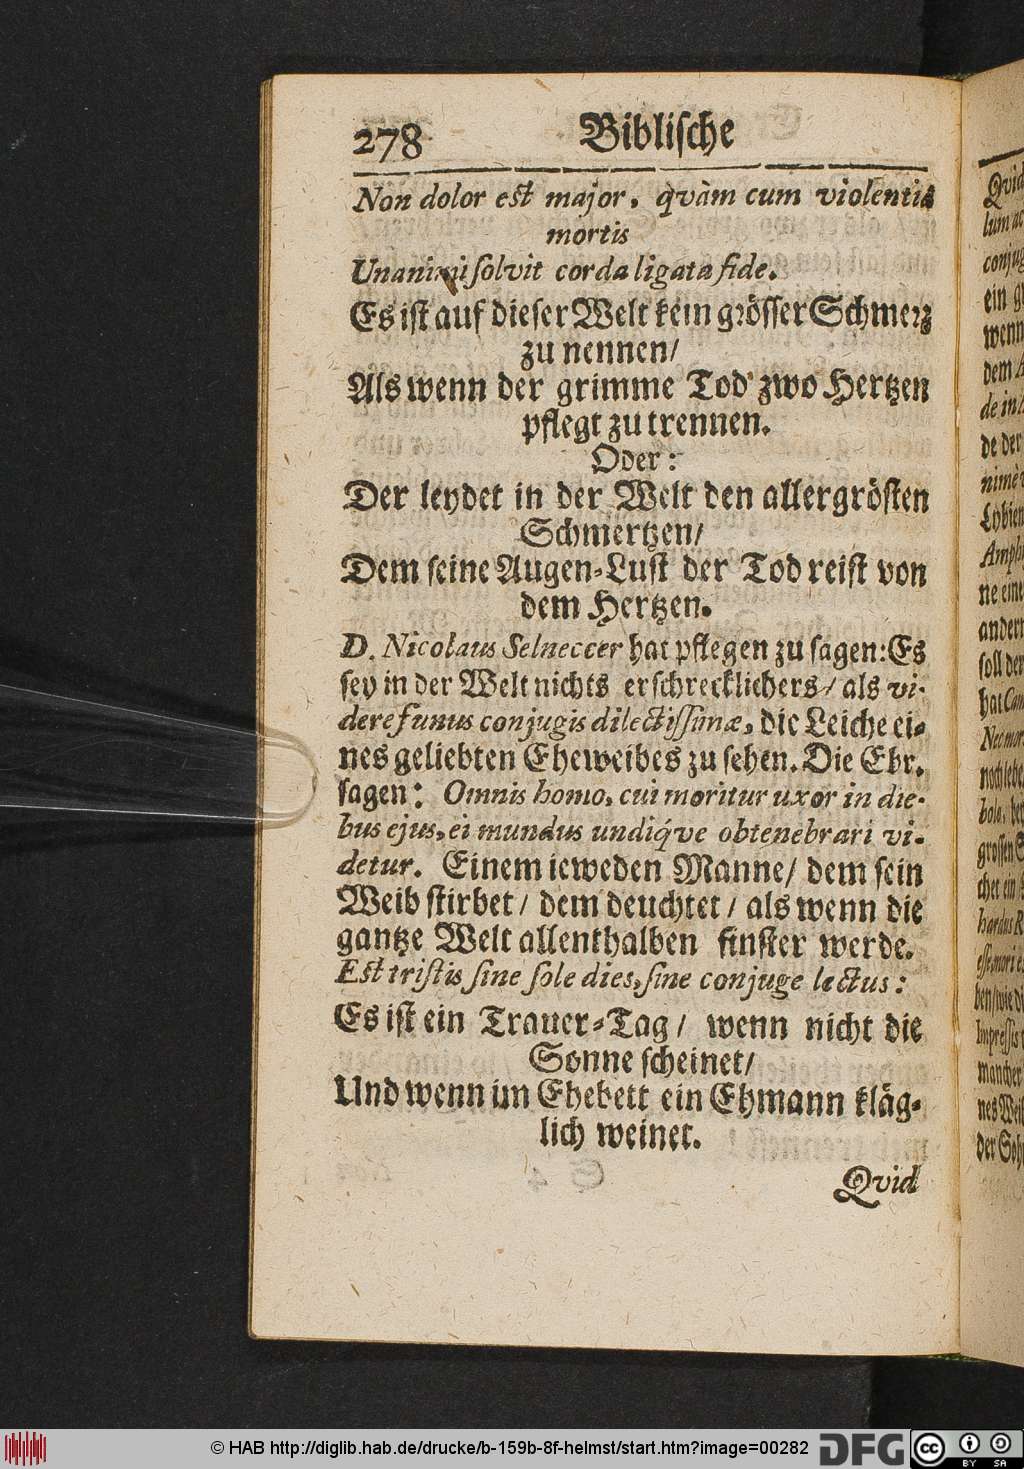 278 Biblische
Non dolor est major, qvàm cum violentia
mortis
Unanimi solvit corda ligata fide.
Es ist auf dieser Welt kein grösser Schmerz
zu nennen/
Als wenn der grimme Tod zwo Hertzen
pflegt zu trennen.
Oder:
Der leydet in der Welt den allergrösten
Schmertzen/
Dem seine Augen-Lust der Tod reist von
dem Hertzen.
D. Nicolaus Selneccer hat pflegen zu sagen: Es
sey in der Welt nichts erschrecklichers/ als vi-
dere funus conjugis dilectissimæ, die Leiche ei-
nes geliebten Eheweibes zu sehen. Die Ebr.
sagen: Omnis homo, cui moritur uxor in die-
bus ejus, ei mundus undiq́ve obtenebrari vi-
detur. Einem ieweden Manne/ dem sein
Weib stirbet/ dem deuchtet/ als wenn die
gantze Welt allenthalben finster werde.
Est tristis sine sole dies, sine conjuge lectus:
Es ist ein Trauer-Tag/ wenn nicht die
Sonne scheinet/
Und wenn im Ehebett ein Ehmann kläg-
lich weinet.
Qvid
Qvid
lum
conjug
ein
wenn
dem
de in
de der
nimè
Lybien
Amph
ne eine
andern
soll der
hat
Nec mor
noch lebe
bola,
grossen
chet ein
hardus
esse, mori
ben/ wie
Impressis
mancher
nes Weib
der
© HAB http://diglib.hab.de/drucke/b-159b-8f-helmst/start.htm?image=00282 DFG cc BY SA